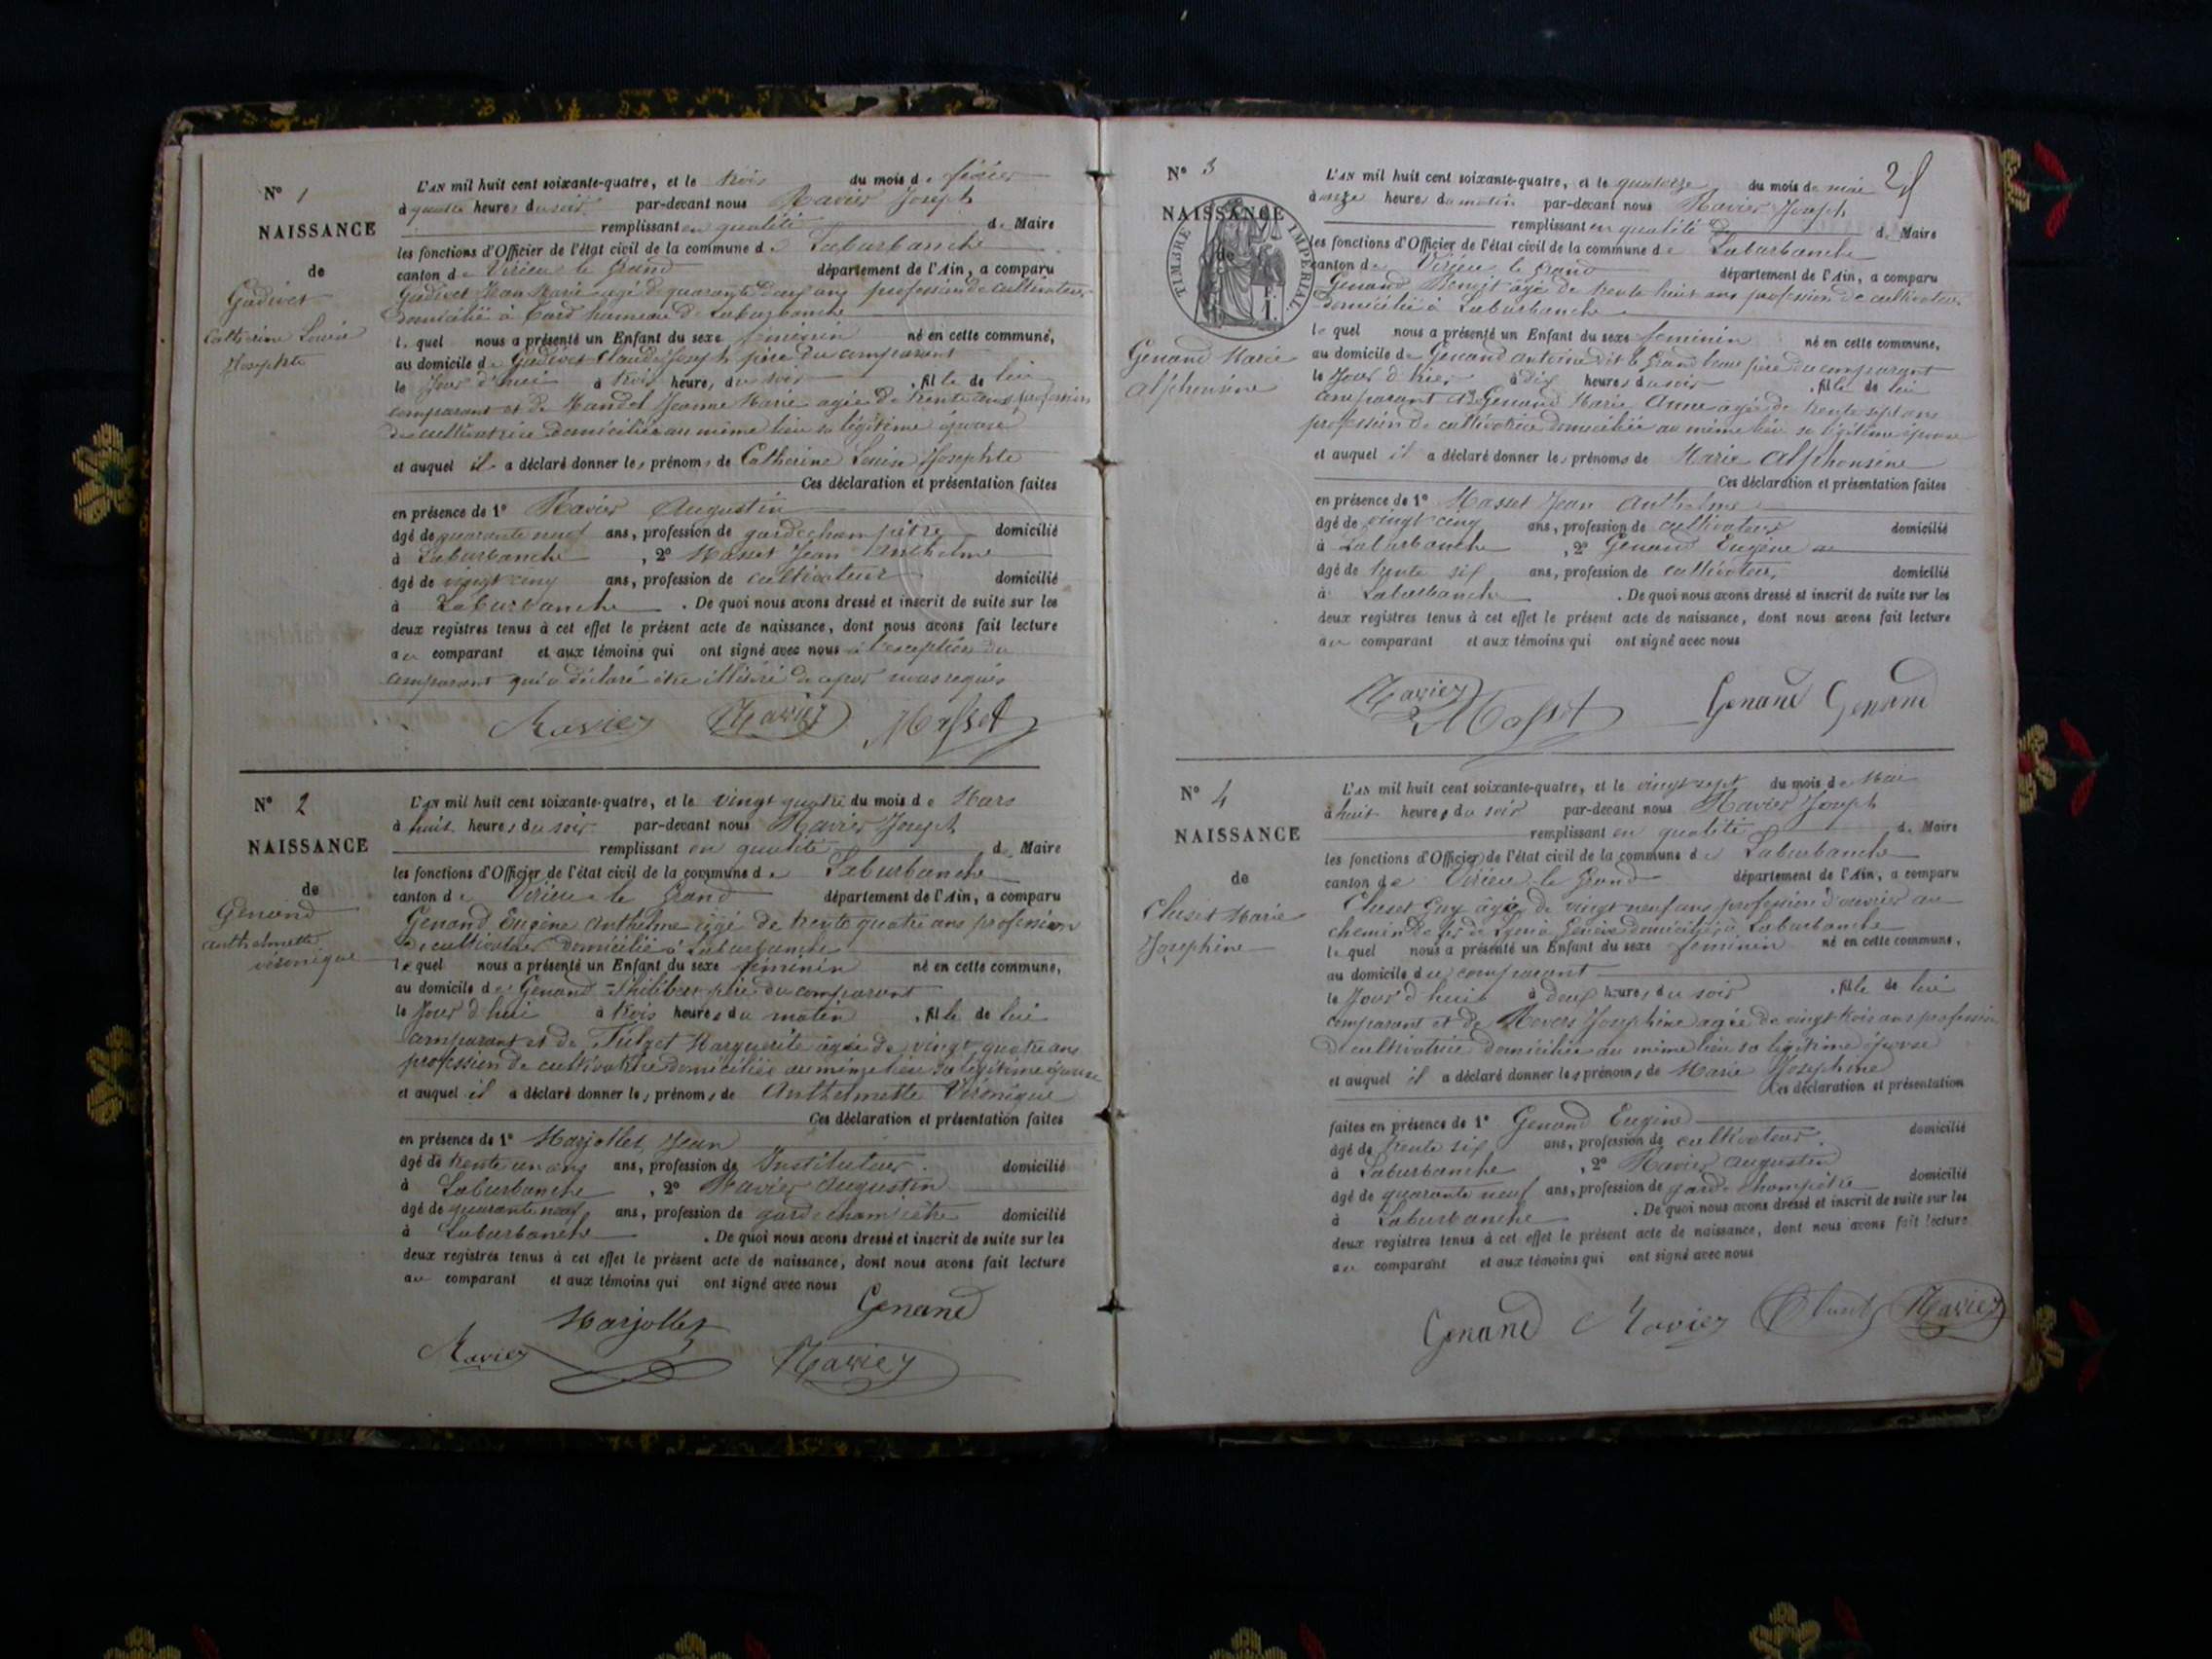 N° 1
NAISSANCE
de
Gudivet
Catherine Louise
Josephte
L'AN mil huit cent soixante-quatre, et le trois du mois de février
à quatre heures du soir par-devant nous Ravier Joseph
remplissant en qualité de Maire
les fonctions d'Officier de l'état civil de la commune de Laburbanche
canton de Virieu le Grand département de l'Ain, a comparu
Gudivet Jean Marie agé de quarante ans profession de cultivateur
domicilié à hameau de Laburbanche
lequel nous a présenté un Enfant du sexe féminin né en cette commune,
au domicile de Gudivet Claude Joseph père du comparant
le jour d'hui à trois heures du soir, fille de lui
comparant et de Jeanne Marie agée de trente ans profession
de cultivatrice domiciliée au même lieu sa légitime épouse
et auquel il a déclaré donner les prénoms de Catherine Louise Josephte
Ces déclaration et présentation faites
en présence de 1° Ravier Augustin
âgé de quarante neuf ans, profession de garde champêtre domicilié
à Laburbanche, 2° Masset Jean Anthelme
âgé de vingt cinq ans, profession de cultivateur domicilié
à Laburbanche. De quoi nous avons dressé et inscrit de suite sur les
deux registres tenus à cet effet le présent acte de naissance, dont nous avons fait lecture
au comparant et aux témoins qui ont signé avec nous à l'exception du
comparant qui a déclaré être illétéré de ce par nous requis
Ravier Ravier Masset
N° 2
NAISSANCE
de
Genand
anthelmette
véronique
L'AN mil huit cent soixante-quatre, et le vingt quatre du mois de Mars
à huit heures du soir par-devant nous Ravier Joseph
remplissant en qualité de Maire
les fonctions d'Officier de l'état civil de la commune de Laburbanche
canton de Virieu le Grand département de l'Ain, a comparu
Genand Eugène Anthelme agé de trente quatre ans profession
de cultivateur domicilié à Laburbanche
lequel nous a présenté un Enfant du sexe féminin né en cette commune,
au domicile de Genand Philibert père du comparant
le jour d'hui à trois heures du matin, fille de lui
comparant et de Marguerite âgée de vingt quatre ans
profession de cultivatrice domiciliée au même lieu sa légitime épouse
et auquel il a déclaré donner les prénoms de Anthelmette Véronique
Ces déclaration et présentation faites
en présence de 1° Marjollet Jean
âgé de trente un ans ans, profession de Instituteur domicilié
à Laburbanche, 2° Ravier Augustin
âgé de quarante neuf ans, profession de garde champêtre domicilié
à Laburbanche. De quoi nous avons dressé et inscrit de suite sur les
deux registres tenus à cet effet le présent acte de naissance, dont nous avons fait lecture
au comparant et aux témoins qui ont signé avec nous
Genand
Marjollet
Ravier Ravier
N° 3
NAISSANCE
de
TIMBRE IMPERIAL
Genand Marie
alphonsine
L'AN mil huit cent soixante-quatre, et le quatorze du mois de mai
à onze heures du matin par-devant nous Ravier Joseph
remplissant en qualité de Maire
les fonctions d'Officier de l'état civil de la commune de Laburbanche
canton de Virieu le Grand département de l'Ain, a comparu
Genand Benoit âgé de trente huit ans profession de cultivateur
domicilié à Laburbanche
lequel nous a présenté un Enfant du sexe féminin né en cette commune,
au domicile de Genand antoine dit le Grand beau père du comparant
le jour d'hier à dix heures du soir, fille de lui
comparant et de Genand Marie Anne âgée de trente sept ans
profession de cultivatrice domiciliée au même lieu sa légitime épouse
et auquel il a déclaré donner les prénoms de Marie Alphonsine
Ces déclaration et présentation faites
en présence de 1° Masset Jean Anthelme
âgé de vingt cinq ans, profession de cultivateur domicilié
à Laburbanche, 2° Genand Eugène
âgé de trente six ans, profession de cultivateur domicilié
à Laburbanche. De quoi nous avons dressé et inscrit de suite sur les
deux registres tenus à cet effet le présent acte de naissance, dont nous avons fait lecture
au comparant et aux témoins qui ont signé avec nous
Ravier Masset Genand Genand
N° 4
NAISSANCE
de
Cluset Marie
Josephine
L'AN mil huit cent soixante-quatre, et le vingt sept du mois de Mai
à huit heures du soir par-devant nous Ravier Joseph
remplissant en qualité de Maire
les fonctions d'Officier de l'état civil de la commune de Laburbanche
canton de Virieu le Grand département de l'Ain, a comparu
Cluset Guy âgé de vingt neuf ans profession d'ouvrier au
chemin de fer de Lyon à Genève domicilié à Laburbanche
lequel nous a présenté un Enfant du sexe féminin né en cette commune,
au domicile du comparant
le jour d'huit à deux heures du soir, fille de lui
comparant et de Josephine agée de vingt trois ans profession
de cultivatrice domiciliée au même lieu sa légitime épouse
et auquel il a déclaré donner les prénoms de Marie Josephine
Ces déclaration et présentation
faites en présence de 1° Genand Eugène
âgé de trente six ans, profession de cultivateur domicilié
à Laburbanche, 2° Ravier Augustin
âgé de quarante neuf ans, profession de garde champêtre domicilié
à Laburbanche. De quoi nous avons dressé et inscrit de suite sur les
deux registres tenus à cet effet le présent acte de naissance, dont nous avons fait lecture
au comparant et aux témoins qui ont signé avec nous
Genand Ravier Cluset Ravier